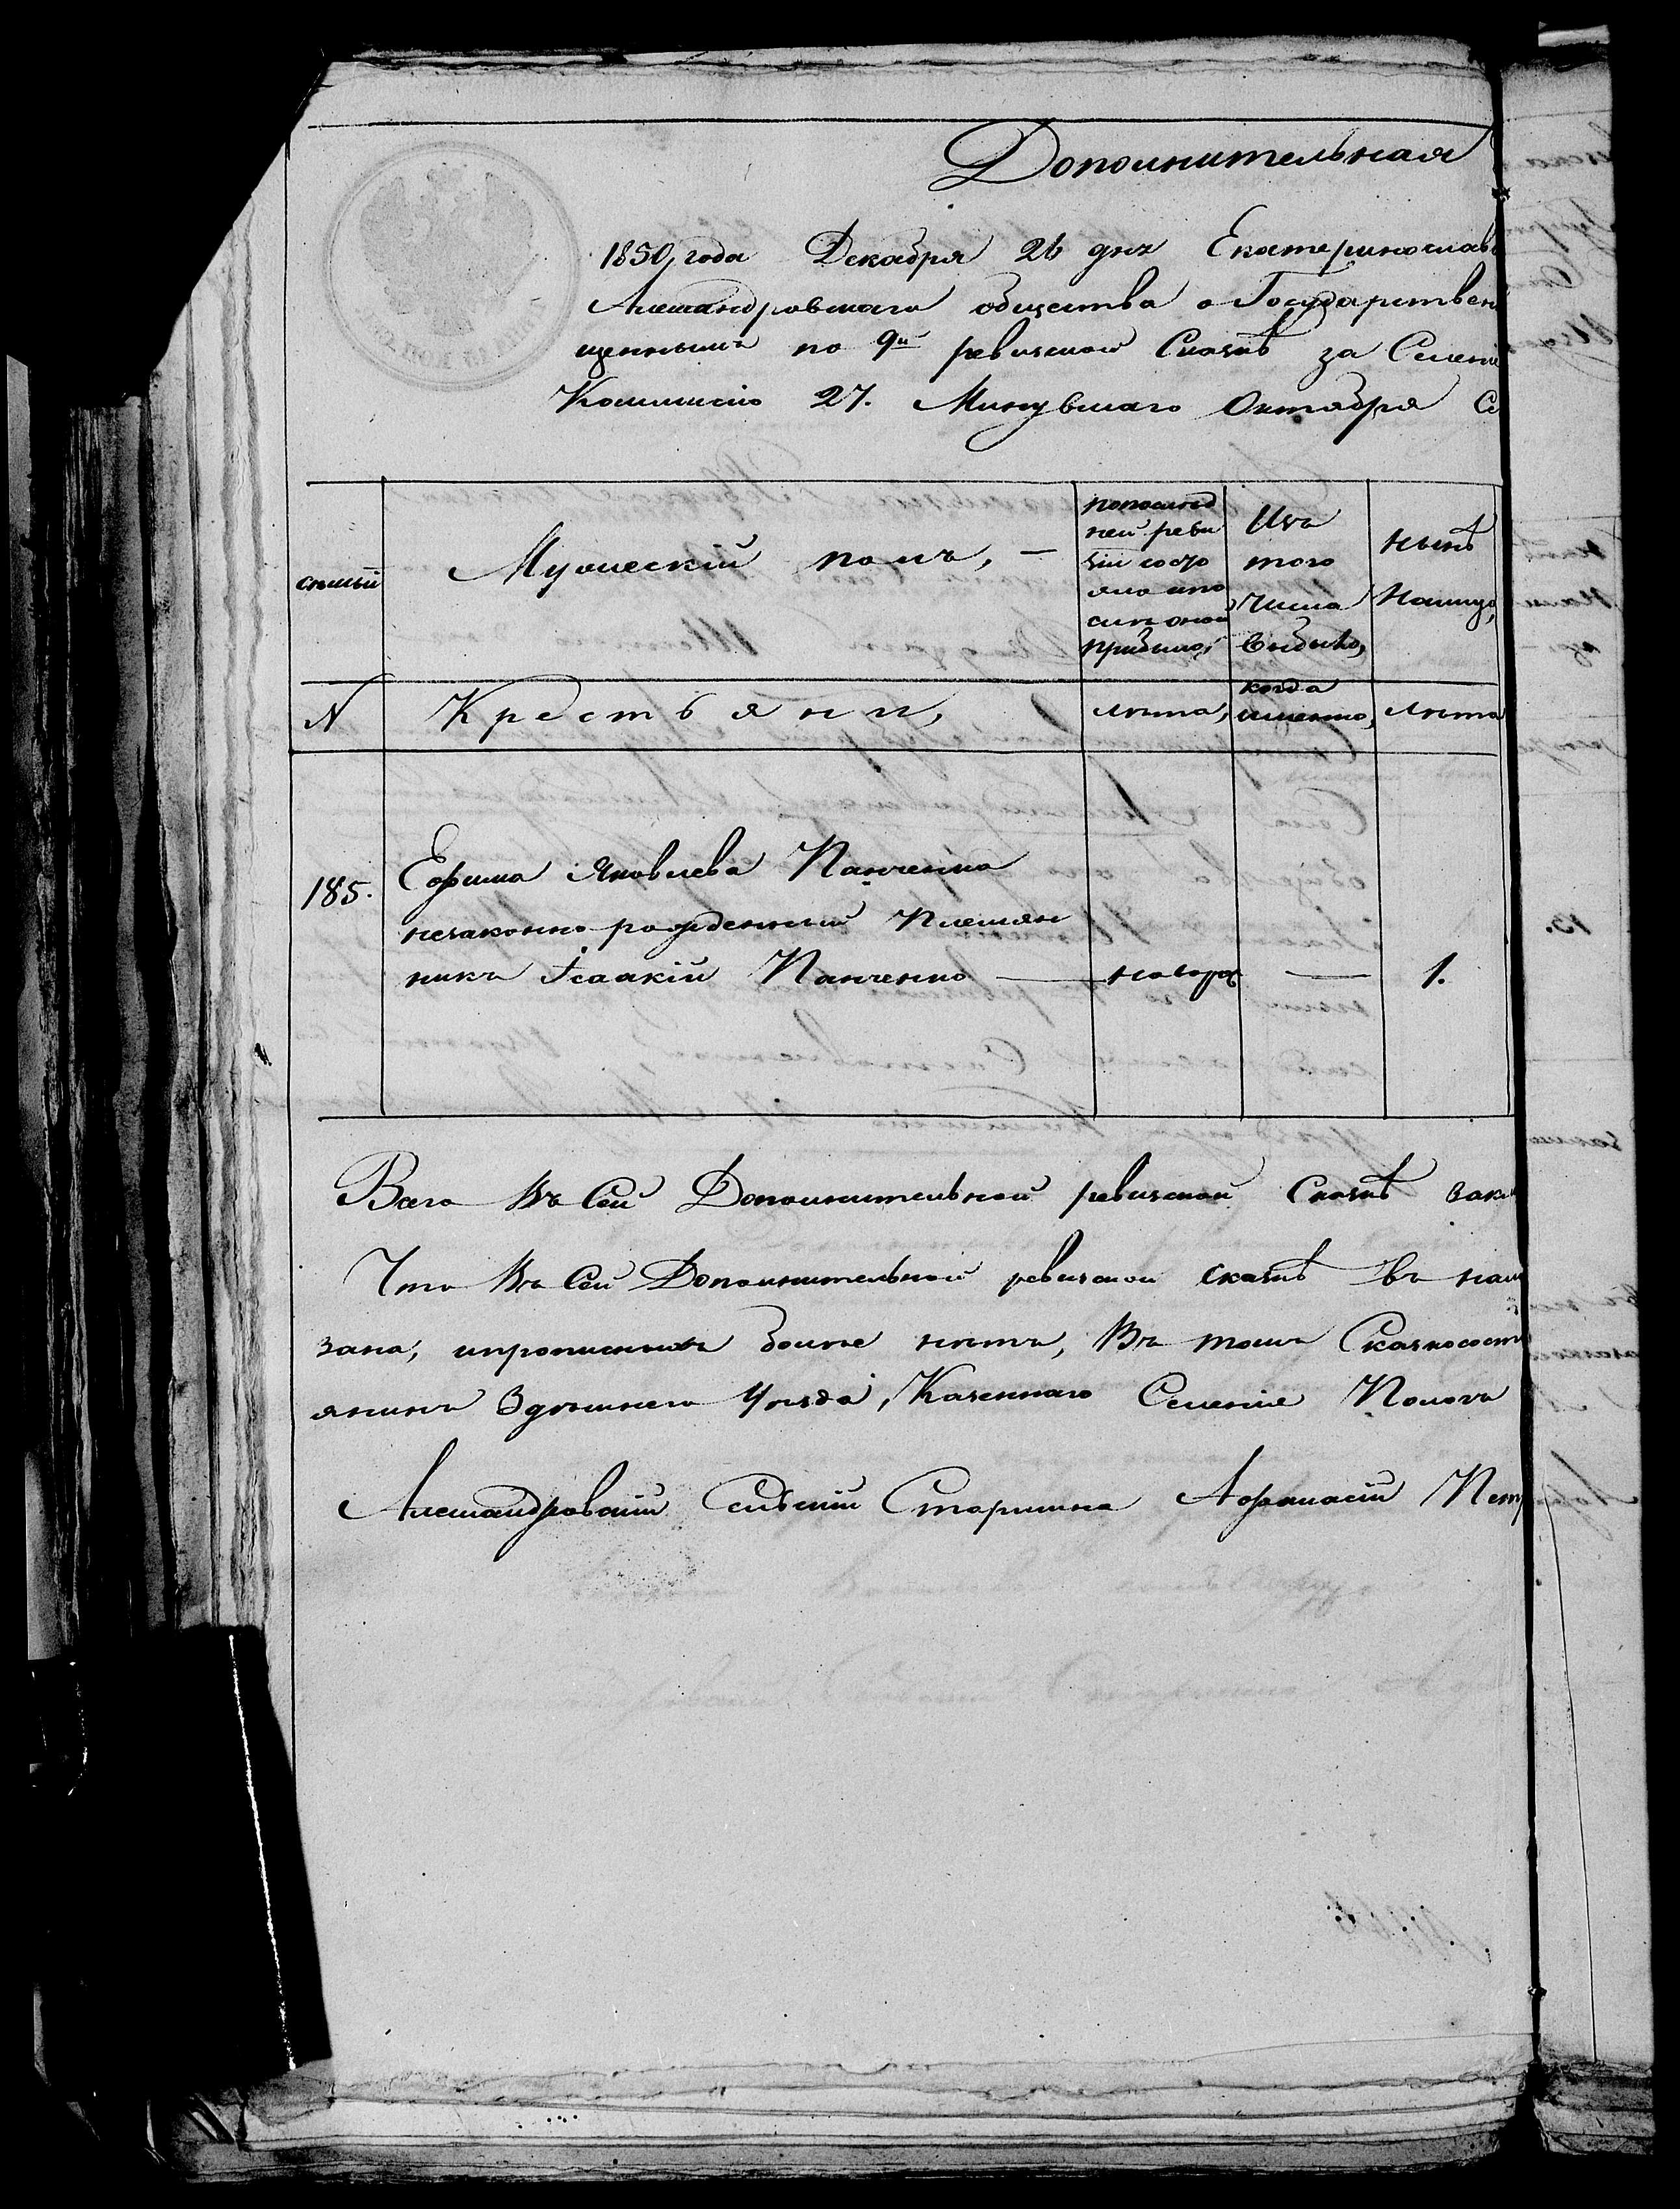 Дополнительная
1850 года Декабря 26 дня Екатеринослав
Александровскаго общества о Государствен
щенными по 9й ревизской Сказкѣ за Селені
Коммисію 27. Минувшаго Октября Се
семьи
Мужескій полъ, —
по послѣд
ней реви
зіи состо
яло и по
слѣ оной
прибыло,
Изъ
того
числа
выбыло,
нынѣ
На лицо,
№
Крестьяни,
лѣта,
когда
именно,
Лѣта
185.
Ефима Яковлева Панченка
незаконно рожденный Племян
никъ Ісаакій Панченко — новорож — 1.
Всего Въ Сей Дополнительной ревизской Сказкѣ зак
Что Въ Сей Дополнительной ревизской сказкѣ Въ нали
зана, и прописныхъ болѣе нѣтъ, Въ томъ Сказкосост
янинъ Здѣшнего Уѣзда, Казеннаго Селенія Пологъ
Александровскій Сельскій Старшина Афанасій Петр